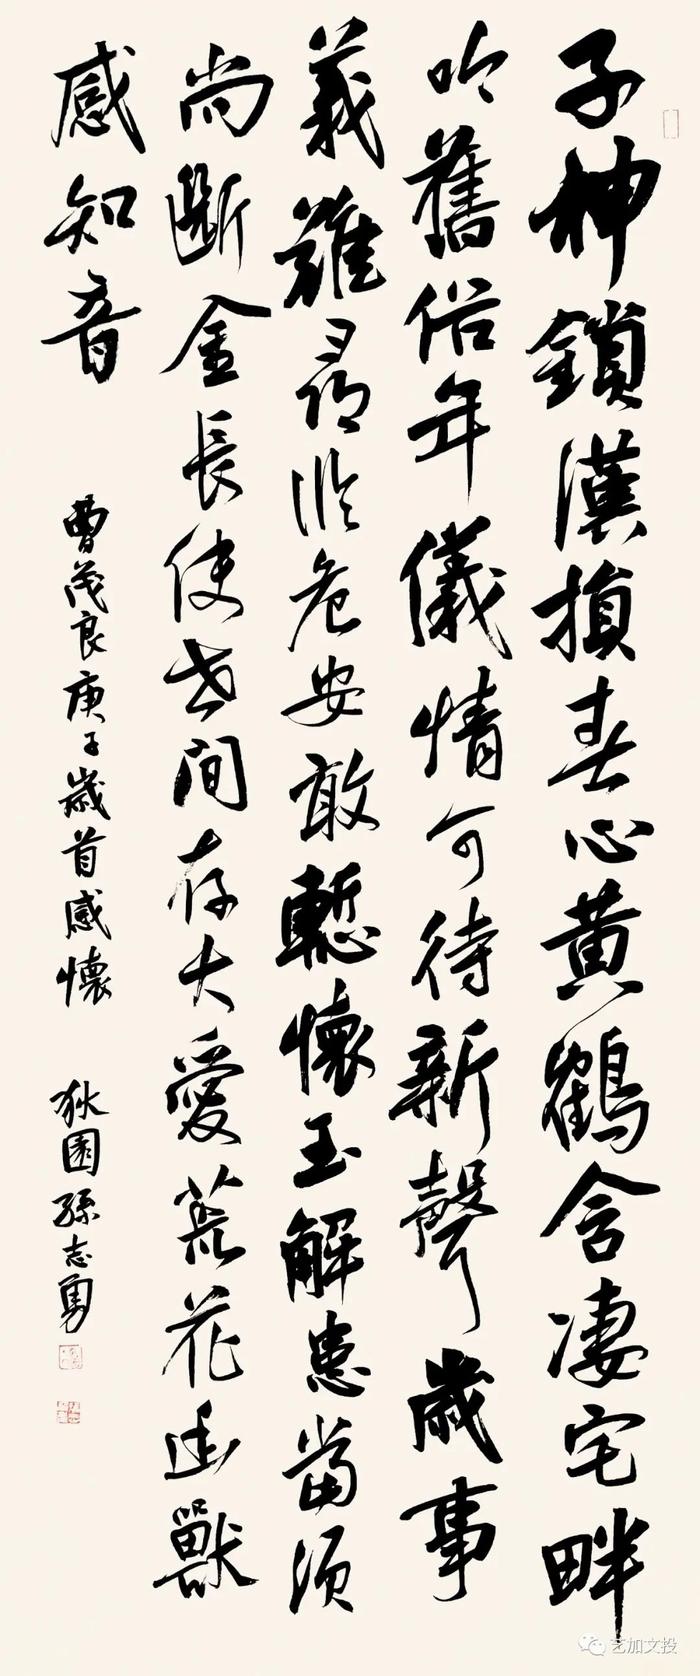 子神鎖漢損春心黄鶴含淒宅畔
吟舊俗年儀情可待新聲歲事
義難尋臨危安敢慙懷玉解患當須
尚斷金長使世間存大愛荒花幽獸
感知音
曹茂良庚子歲首感懷 狄園孫志勇
艺加文投